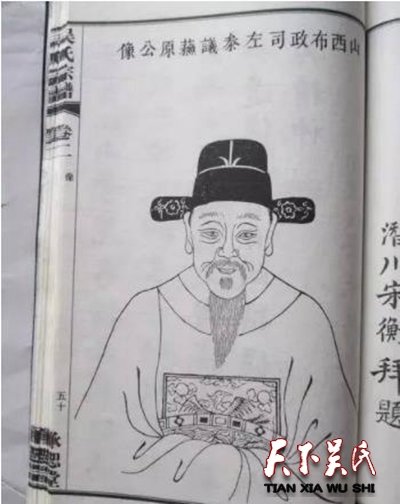 潛川宋衡拜題
山西布政司左叅議蘓原公像
吳氏宗譜
卷二
像
五十
天下吴氏
TIAN XIA WU SHI